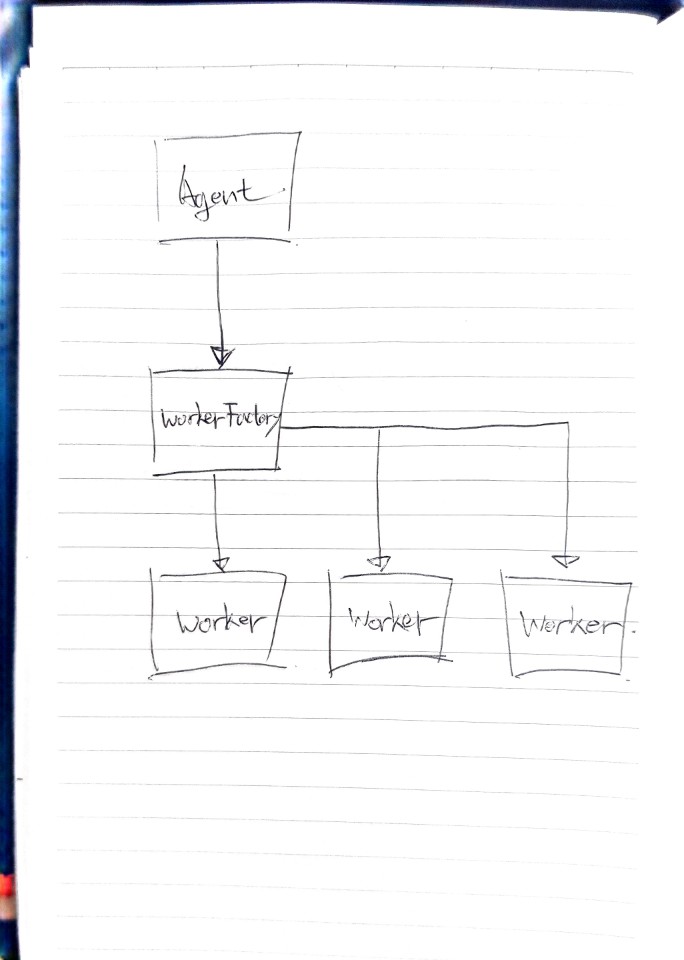 Agent
WorkerFactory
Worker
Worker
Worker